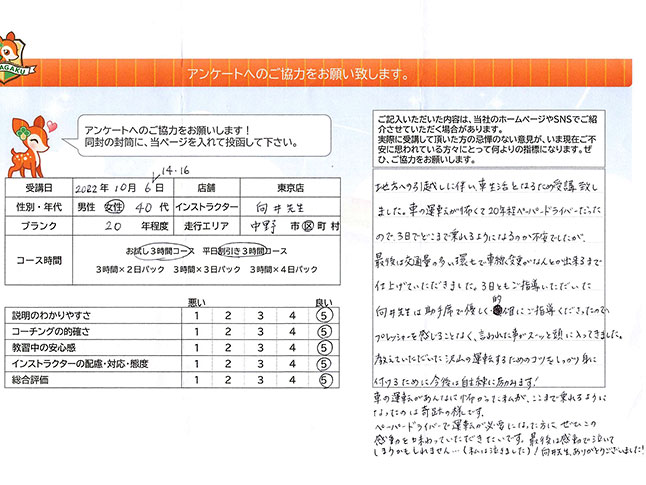 アンケートへのご協力をお願い致します。
アンケートへのご協力をお願いします！
同封の封筒に、当ページを入れて投函して下さい。
14・16
受講日 2022年10月6日 店舗 東京店
性別・年代 男性 女性 40代 インストラクター 向井先生
ブランク 20年程度 走行エリア 中野 市区町村
コース時間 お試し3時間コース 平日割引き3時間コース
3時間×2日パック 3時間×3日パック 3時間×4日パック
悪い 良い
説明のわかりやすさ 1 2 3 4 5
コーチングの的確さ 1 2 3 4 5
教習中の安心感 1 2 3 4 5
インストラクターの配慮・対応・態度 1 2 3 4 5
総合評価 1 2 3 4 5
ご記入いただいた内容は、当社のホームページやSNSでご紹
介させていただく場合があります。
実際に受講して頂いた方の忌憚のない意見が、いま現在ご不
安に思われている方々にとって何よりの指標になります。ぜ
ひ、ご協力をお願いします。
地方への引越しに伴い、車生活となるため受講致し
ました。車の運転が怖くて20年程ペーパードライバーだった
ので、3日でどこまで乗れるようになるのか不安でしたが、
最後は交通量の多い環七で車線変更がなんとか出来るまで
仕上げていただきました。3日ともご指導いただいた
向井先生は助手席で優しく的確にご指導くださったので
プレッシャーを感じることなく、言われた事がスーッと頭に入ってきました。
教えていただいた沢山の運転するためのコツをしっかり身に
付けるために今後は自主練に励みます！
車の運転があんなに怖かったわたしが、ここまで乗れるように
なったのは奇跡の様です。
ペーパードライバーで運転が必要になった方に、ぜひこの
感動を味わっていただきたいです。最後は感動で泣いて
しまうかもしれません…(私は泣きました)！向井先生、ありがとうございました！